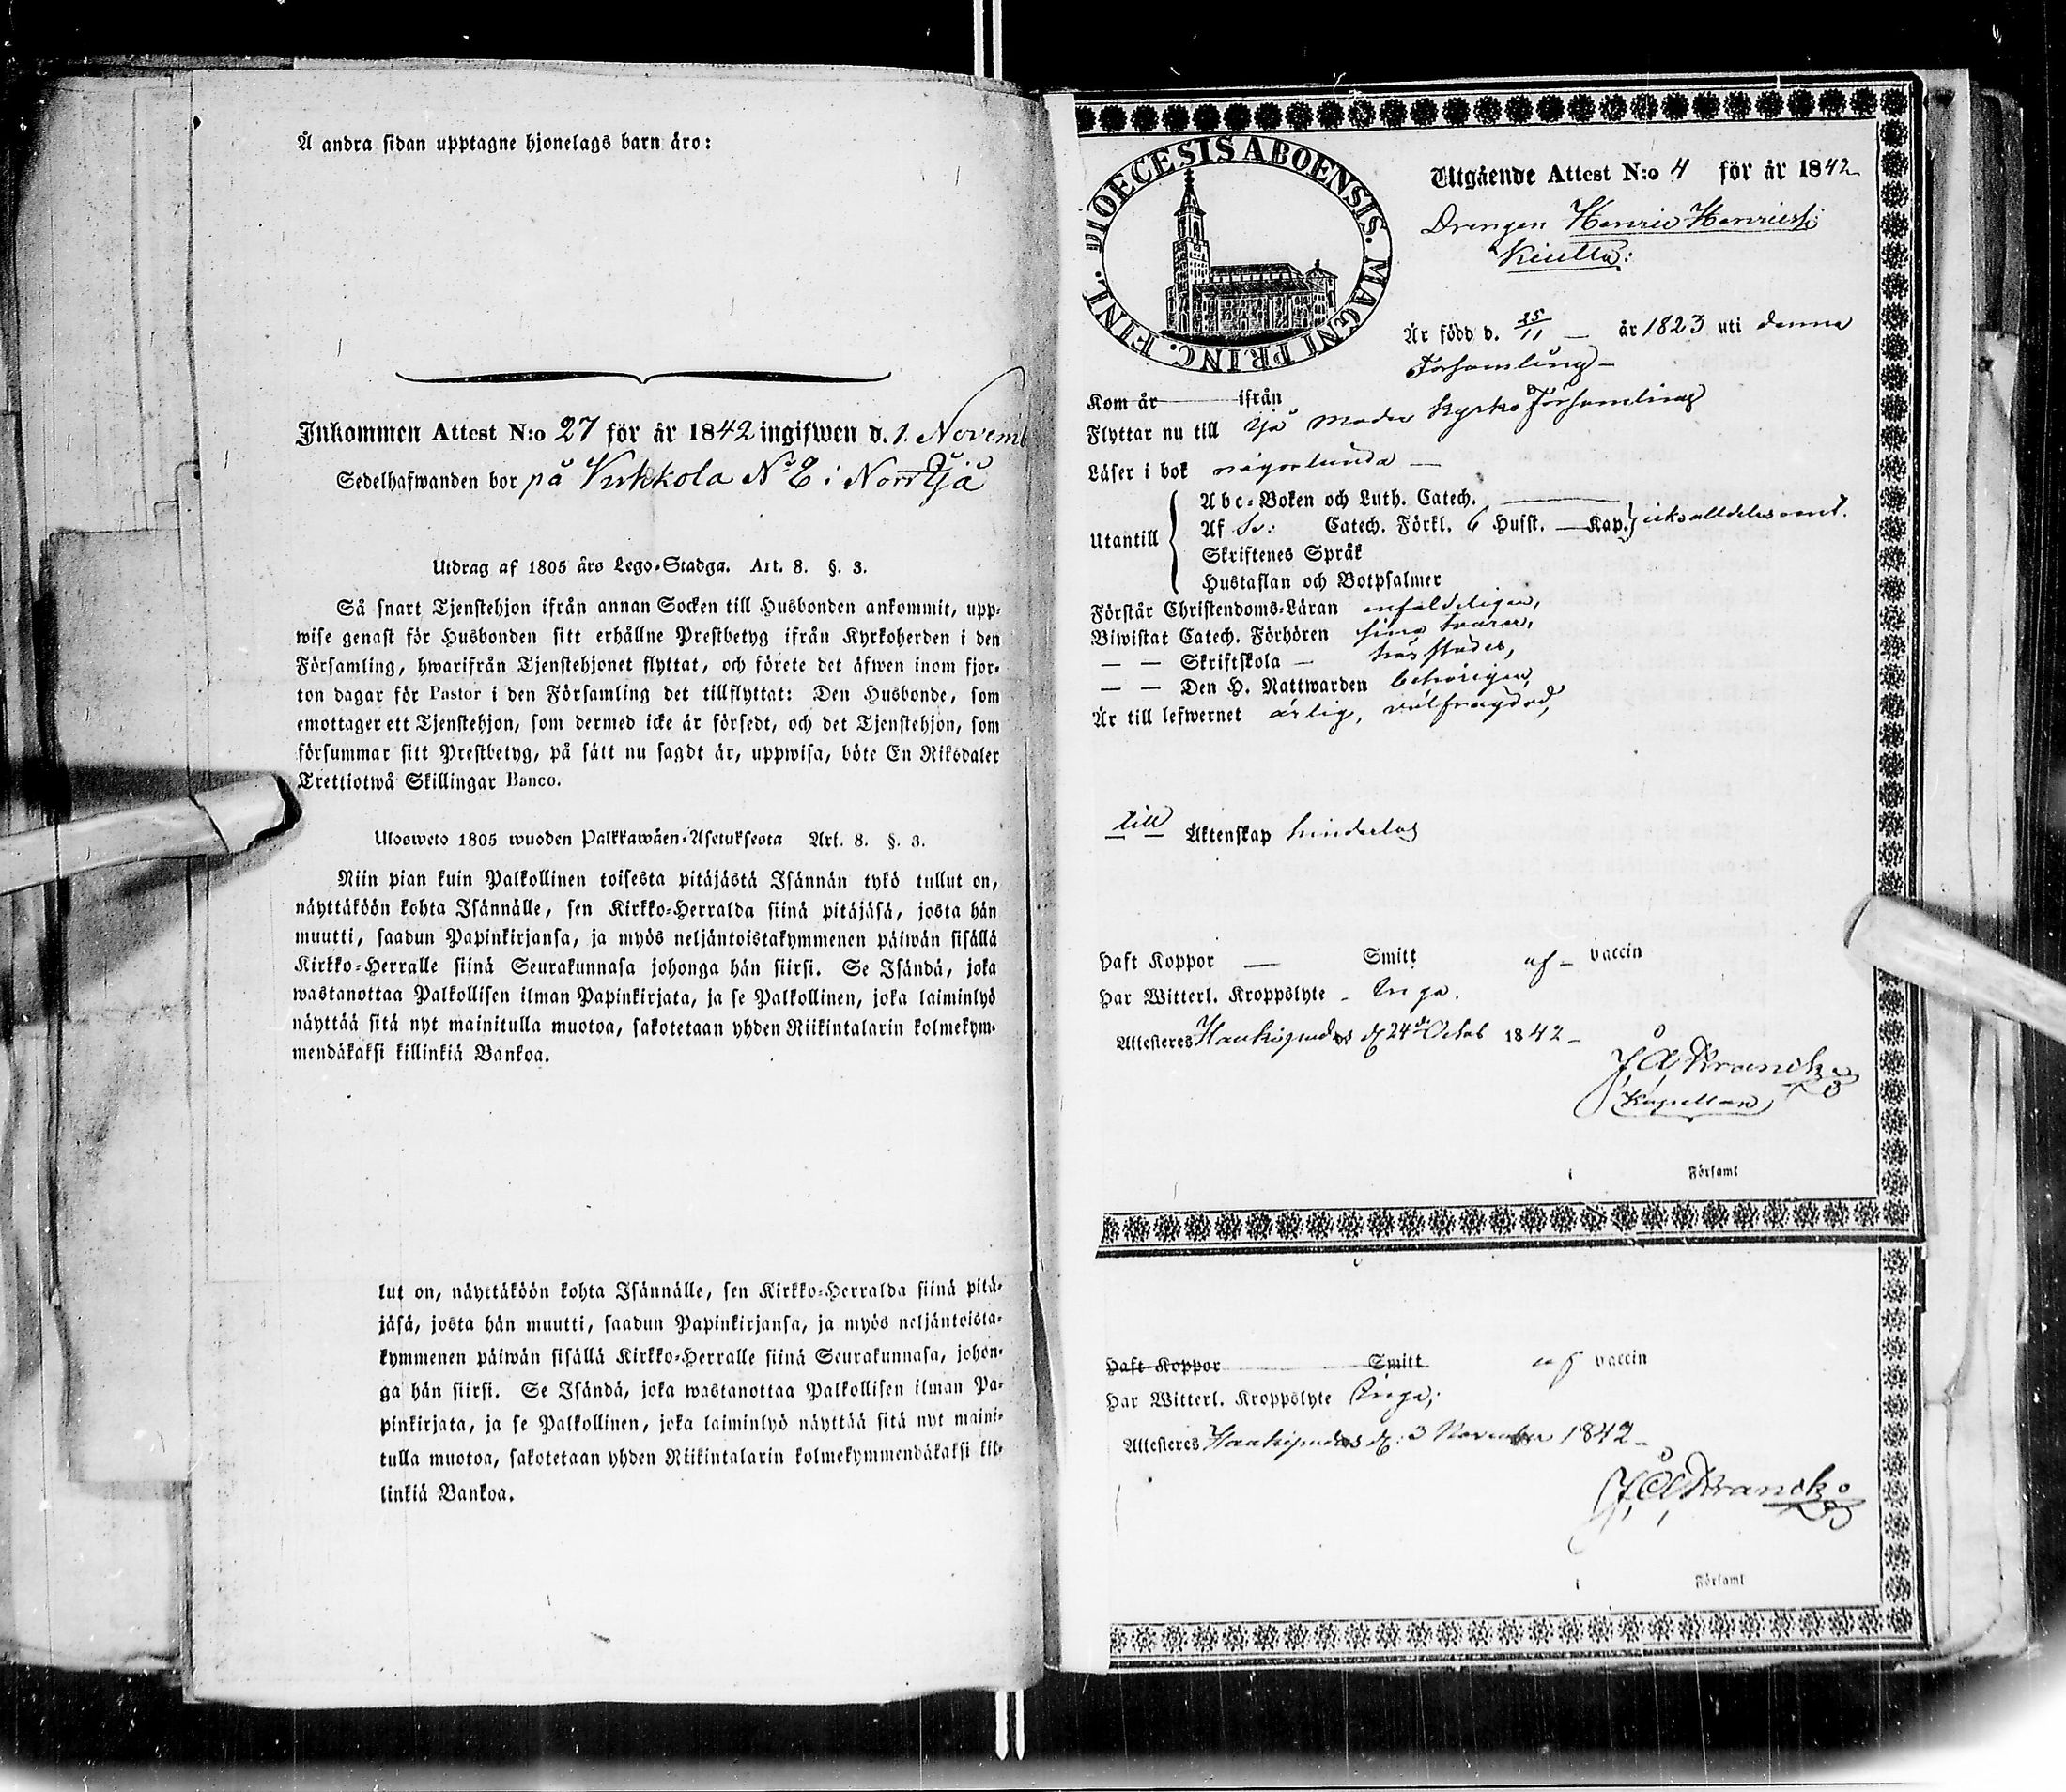 Å andra sidan upptagne hjonelags barn äro:
Inkommen Attest N:o 27 för år 1842 ingifwen d. 1. Novemb
Sedelhafwanden bor på N:o 2 i Norr Ijå
Utdrag af 1805 års Lego-Stadga. Art. 8. §. 3.
Så snart Tjenstehjon ifrån annan Socken till Husbonden ankommit, upp-
wise genast för Husbonden sitt erhållne Prestbetyg ifrån Kyrkoherden i den
Församling, hwarifrån Tjenstehjonet flyttat, och förete det äfwen inom fjor-
ton dagar för Pastor i den Församling det tillflyttat: Den Husbonde, som
emottager ett Tjenstehjon, som dermed icke är försedt, och det Tjenstehjon, som
försummar sitt Prestbetyg, på sätt nu sagdt är, uppwisa, böte En Riksdaler
Trettiotwå Skillingar Banco.
Ulosweto 1805 wuoden Palkkawäen-Asetuksesta Art. 8. §. 3.
Niin pian kuin Palkollinen toisesta pitäjästä Isännän tykö tullut on,
näyttäköön kohta Isännälle, sen Kirkko-Herralda siinä pitäjäsä, josta hän
muutti, saadun Papinkirjansa, ja myös neljäntoistakymmenen päiwän sisällä
Kirkko-Herralle siinä Seurakunnasa johonga hän siirsi. Se Isändä, joka
wastanottaa Palkollisen ilman Papinkirjata, ja se Palkollinen, joka laiminlyö
näyttää sitä nyt mainitulla muotoa, sakotetaan yhden Riikintalarin kolmekym-
mendäkaksi killinkiä Bankoa.
lut on, näyttäköön kohta Isännälle, sen Kirkko-Herralda siinä pitä-
jäsä, josta hän muutti, saadun Papinkirjansa, ja myös neljäntoista-
kymmenen päiwän sisällä Kirkko-Herralle siinä Seurakunnasa, johon-
ga hän siirsi. Se Isändä, joka wastanottaa Palkollisen ilman Pa-
pinkirjata, ja se Palkollinen, joka laiminlyö näyttää sitä nyt maini-
tulla muotoa, sakotetaan yhden Riikintalarin kolmekymmendäkaksi kil-
linkiä Bankoa.
DIOECESIS ABOENSIS. MAGNI PRINC. FINL.
Utgående Attest N:o 4 för år 1842
Drengen Henric Henricss:
Är född d. 25/11 — år 1823 uti denna
Församling —
Kom år — ifrån
Flyttar nu till Ijå Moder Kyrko Församling
Läser i bok någorlunda —
Abc-Boken och Luth. Catech. —
Utantill Af Sv: Catech. Förkl. 6 Husst. — Kap. icke alldeles
Skriftenes Språk
Hustaflan och Botpsalmer
Förstår Christendoms-Läran enfaldeligen,
Biwistat Catech. Förhören sina
— — Skriftskola —
— — Den H. Nattwarden behörigen,
Är till lefwernet ärlig, välfrägdad,
till Äktenskap hinderlös
Haft Koppor — Smitt af — vaccin
Har Witterl. Kroppslyte — Inga.
Attesteres Haukipudas d. 24de Octob 1842 —
J A Kranck
Kapellan
i Församl
Haft Koppor Smitt af vaccin
Har Witterl. Kroppslyte Inga;
Attesteres Haukipudas d. 3 November 1842 —
J A Kranck
i Församl